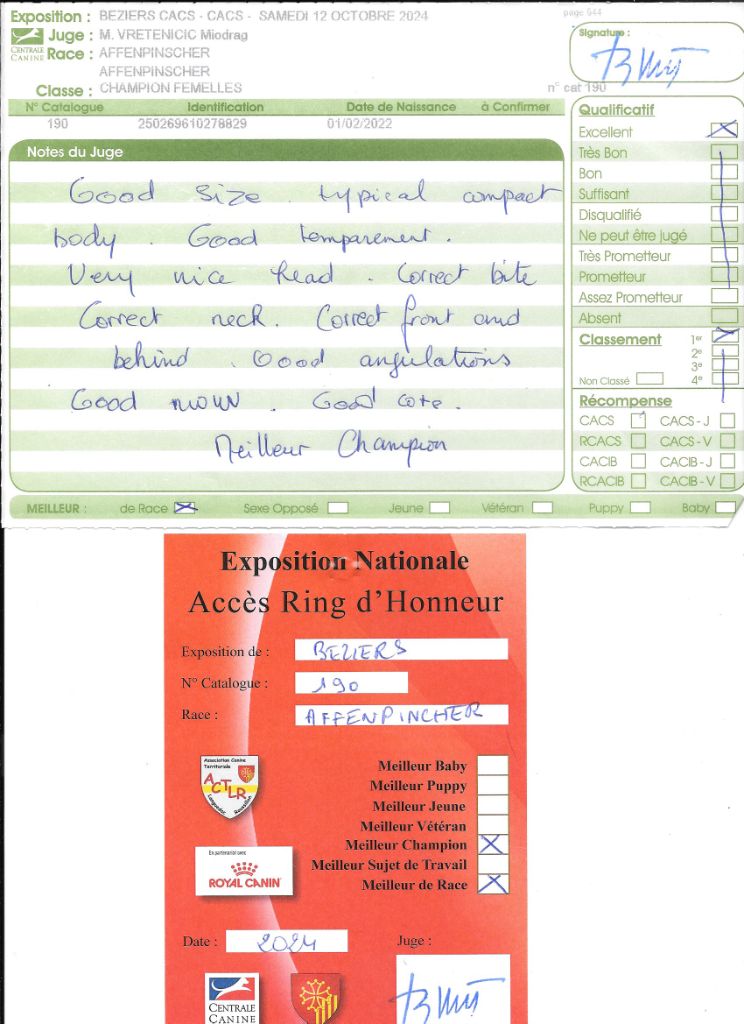 Exposition : BEZIERS CACS - CACS - SAMEDI 12 OCTOBRE 2024
page 644
CENTRALE CANINE
Juge : M. VRETENICIC Miodrag
Race : AFFENPINSCHER
AFFENPINSCHER
Classe : CHAMPION FEMELLES
n° cat 190
Signature :
N° Catalogue Identification Date de Naissance à Confirmer
190 250269610278829 01/02/2022
Notes du Juge
Good size. typical compact
body. Good temparement.
Very nice head. Correct bite
Correct neck. Correct front and
behind. Good angulations
Good mouv. Good cote.
Meilleur Champion
Qualificatif
Excellent
Très Bon
Bon
Suffisant
Disqualifié
Ne peut être jugé
Très Prometteur
Prometteur
Assez Prometteur
Absent
Classement 1er
2e
3e
Non Classé 4e
Récompense
CACS CACS - J
RCACS CACS - V
CACIB CACIB - J
RCACIB CACIB - V
MEILLEUR : de Race Sexe Opposé Jeune Vétéran Puppy Baby
Exposition Nationale
Accès Ring d'Honneur
Exposition de : BEZIERS
N° Catalogue : 190
Race : AFFENPINCHER
Association Canine
Territoriale
ACTLR
Languedoc Roussillon
Meilleur Baby
Meilleur Puppy
Meilleur Jeune
Meilleur Vétéran
Meilleur Champion
Meilleur Sujet de Travail
Meilleur de Race
En partenariat avec
ROYAL CANIN
Date : 2024
Juge :
CENTRALE
CANINE